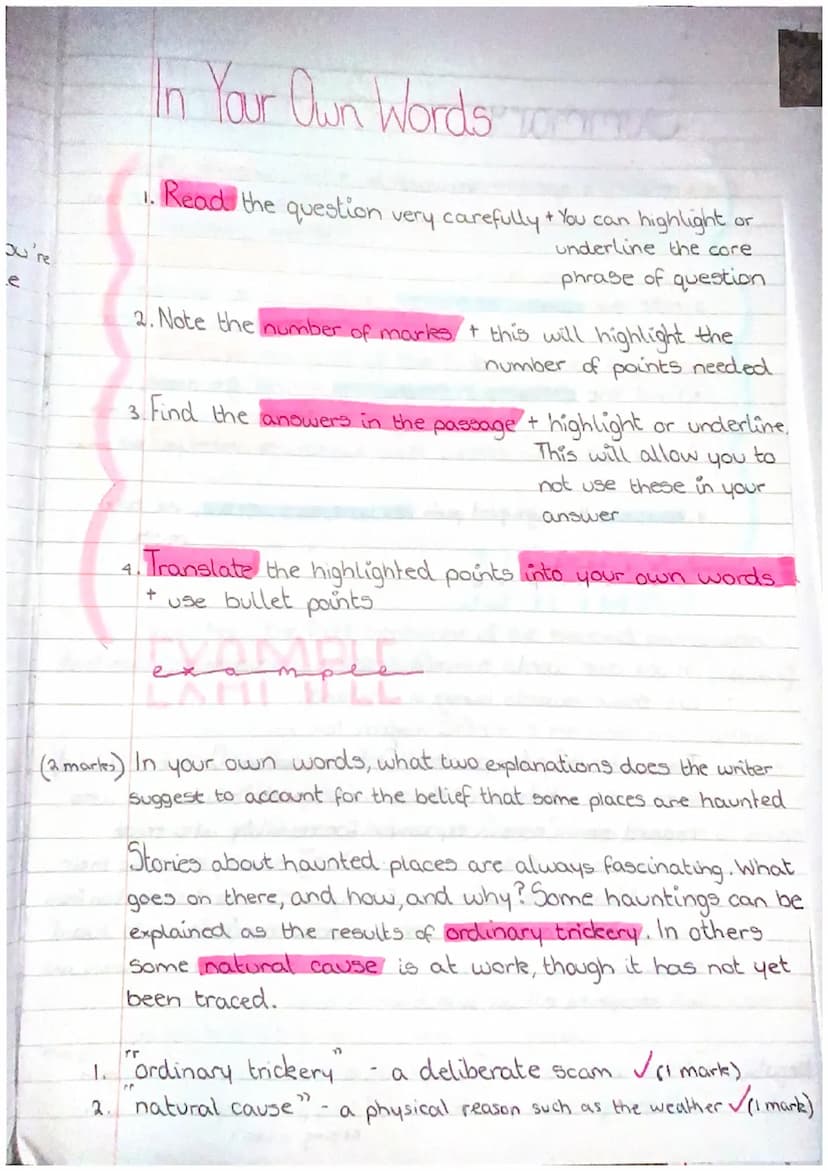 In Your Own Words
1. Read the question very carefully + You can highlight or
underline the core
phrase of question
ou're
e
2. Note the number of marks + this will highlight the
number of points needed
3. Find the answers in the passage + highlight or underline.
This will allow you to
not use these in your
answer
4. Translate the highlighted points into your own words
+ use bullet points
example
(2 marks) In your own words, what two explanations does the writer
suggest to account for the belief that some places are haunted
Stories about haunted places are always fascinating. What
goes on there, and how, and why? Some hauntings can be
explained as the results of ordinary trickery. In others
some natural cause is at work, though it has not yet
been traced.
1. "ordinary trickery" - a deliberate scam ✓ (1 mark)
2. "natural cause" - a physical reason such as the weather ✓ (1 mark)